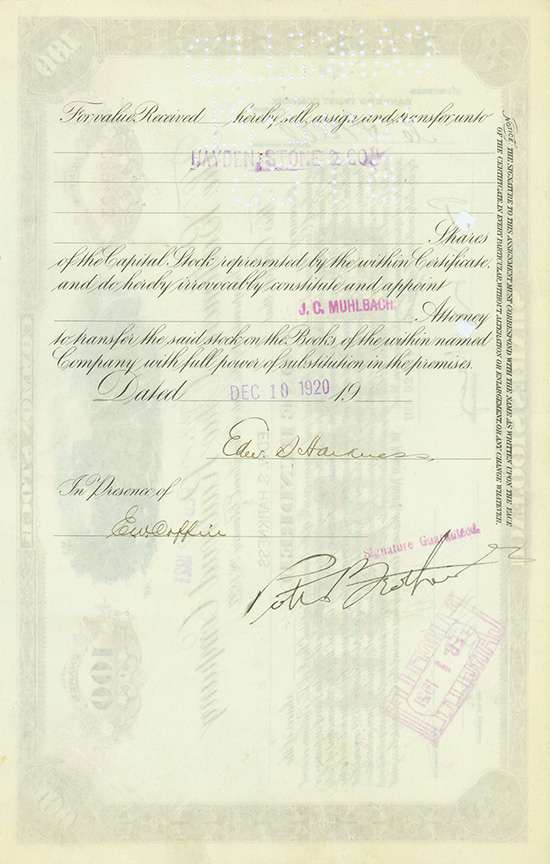 For value Received hereby sell, assign and transfer unto
HAYDEN, STONE & CO.
Shares
of the Capital Stock represented by the within Certificate,
and do hereby irrevocably constitute and appoint
J. C. MUHLBACH
Attorney
to transfer the said stock on the Books of the within named
Company with full power of substitution in the premises.
Dated DEC 10 1920 19
Edw. S Harkness
In Presence of
EW Coffin
Signature Guaranteed.
Potter Brothers
NOTICE THE SIGNATURE TO THIS ASSIGNMENT MUST CORRESPOND WITH THE NAME AS WRITTEN UPON THE FACE
OF THE CERTIFICATE IN EVERY PARTICULAR WITHOUT ALTERATION OR ENLARGEMENT OR ANY CHANGE WHATEVER.
100
100